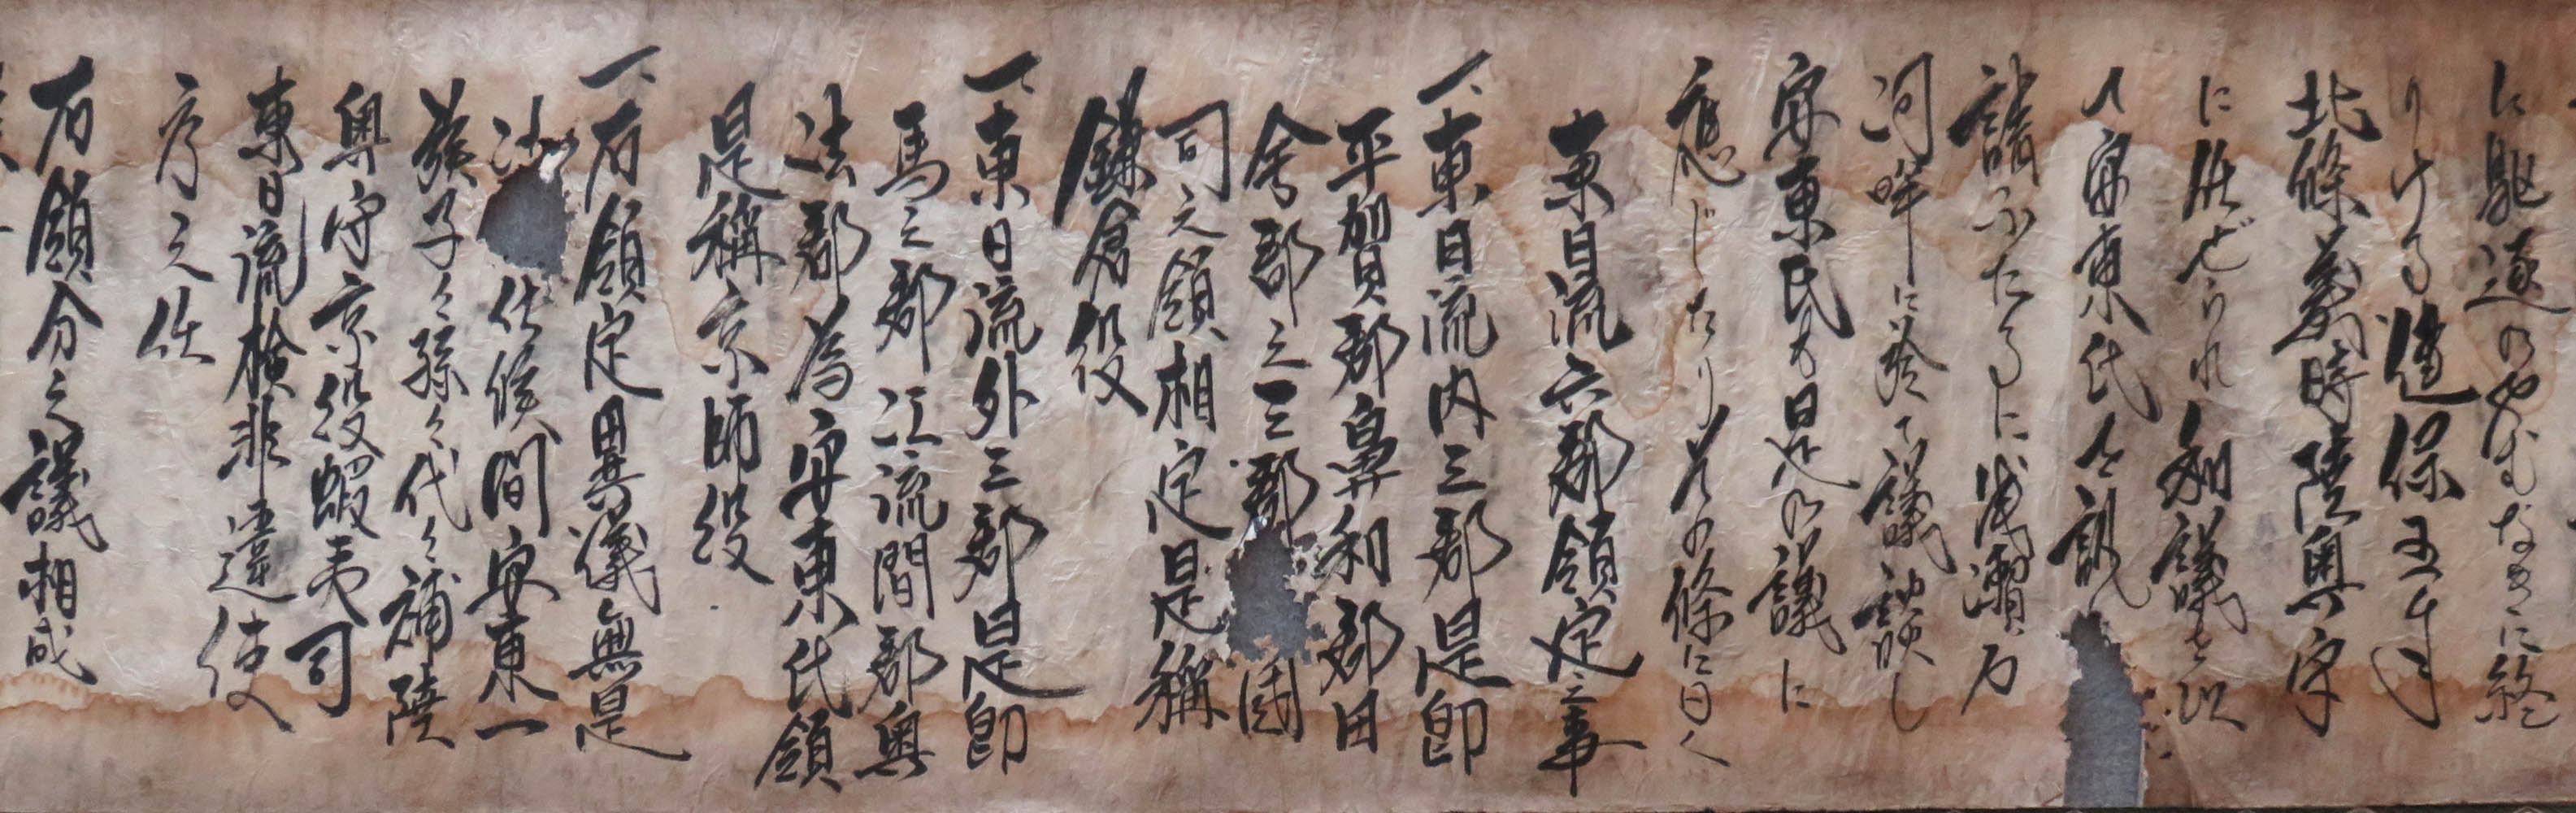 に駆逐のやむなきに終
りける建保五年
北條義時陸奥守
に任ぜられ和議を以
て安東氏と
請ふたるに浅瀬石
河畔に於て議談し
安東氏も是の議に
應じたり其の條に曰く
東日流六郡領定之事
一、東日流内三郡是卽
平賀郡鼻利郡田
舎郡之三郡國
司之領相定是稱
鎌倉役
一、東日流外三郡是卽
馬之郡江流間郡奥
法郡為安東氏領
是稱京師役
一、右領定異儀無是
沙仕候間安東一
族子々孫々代々補陸
奥守京役蝦夷司
東日流検非違使
序之任
右領分之議相成